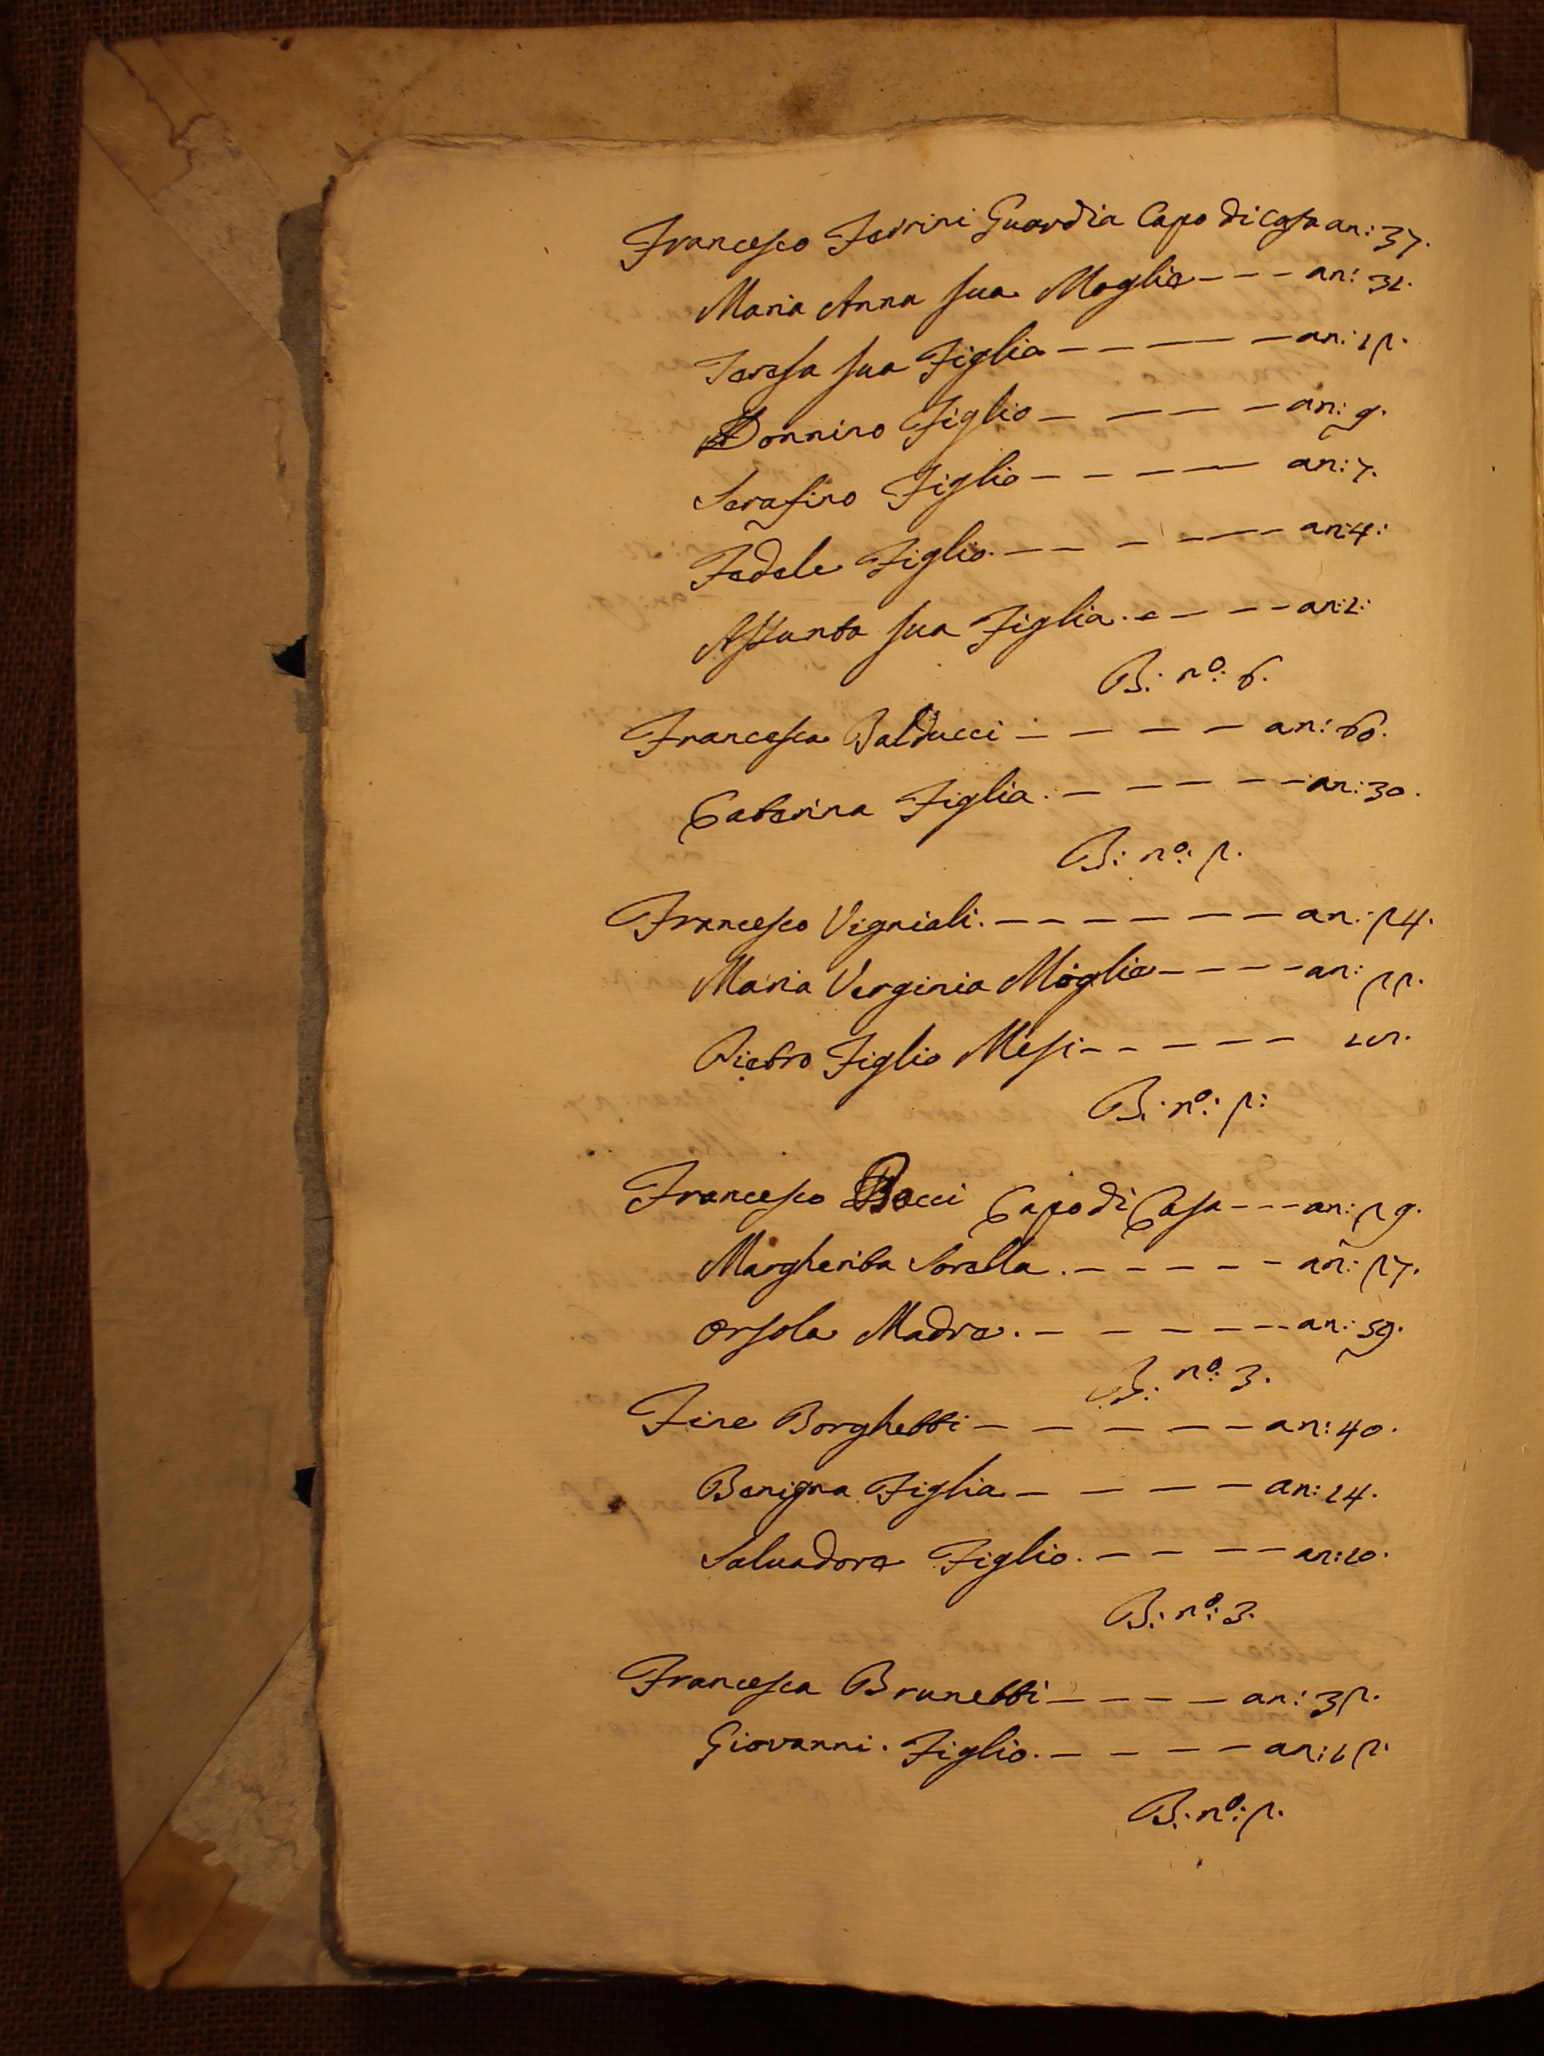 Francesco Ferrini Guardia Capo di casa an: 37.
Maria Anna sua Moglie - - - an: 31.
Teresa sua Figlia - - - - - an: 12.
Donnino Figlio - - - - an: 9.
Serafino Figlio - - - - - an: 7.
Fedele Figlio. - - - - - an: 4:
Assunta sua Figlia. - - - - an: 1:
B: nº: 6.
Francesca Balducci - - - - - an: 60.
Caterina Figlia. - - - - - an: 30.
B: nº: 2.
Francesco Vigniali. - - - - - - an: 24.
Maria Verginia Moglie - - - - an: 22.
Pietro Figlio Mesi - - - - - -
B: nº: 2:
Francesco Bacci Capo di Casa - - - an: 29.
Margherita Sorella. - - - - - an: 27.
Orsola Madre. - - - - - - an: 59.
B: nº: 3.
Fine Borghetti - - - - - - an: 40.
Benigna Figlia - - - - - an: 14.
Salvadore Figlio. - - - - an: 10.
B: nº: 3.
Francesca Brunetti - - - - an: 32.
Giovanni. Figlio. - - - - - an: 12.
B: nº: 2.